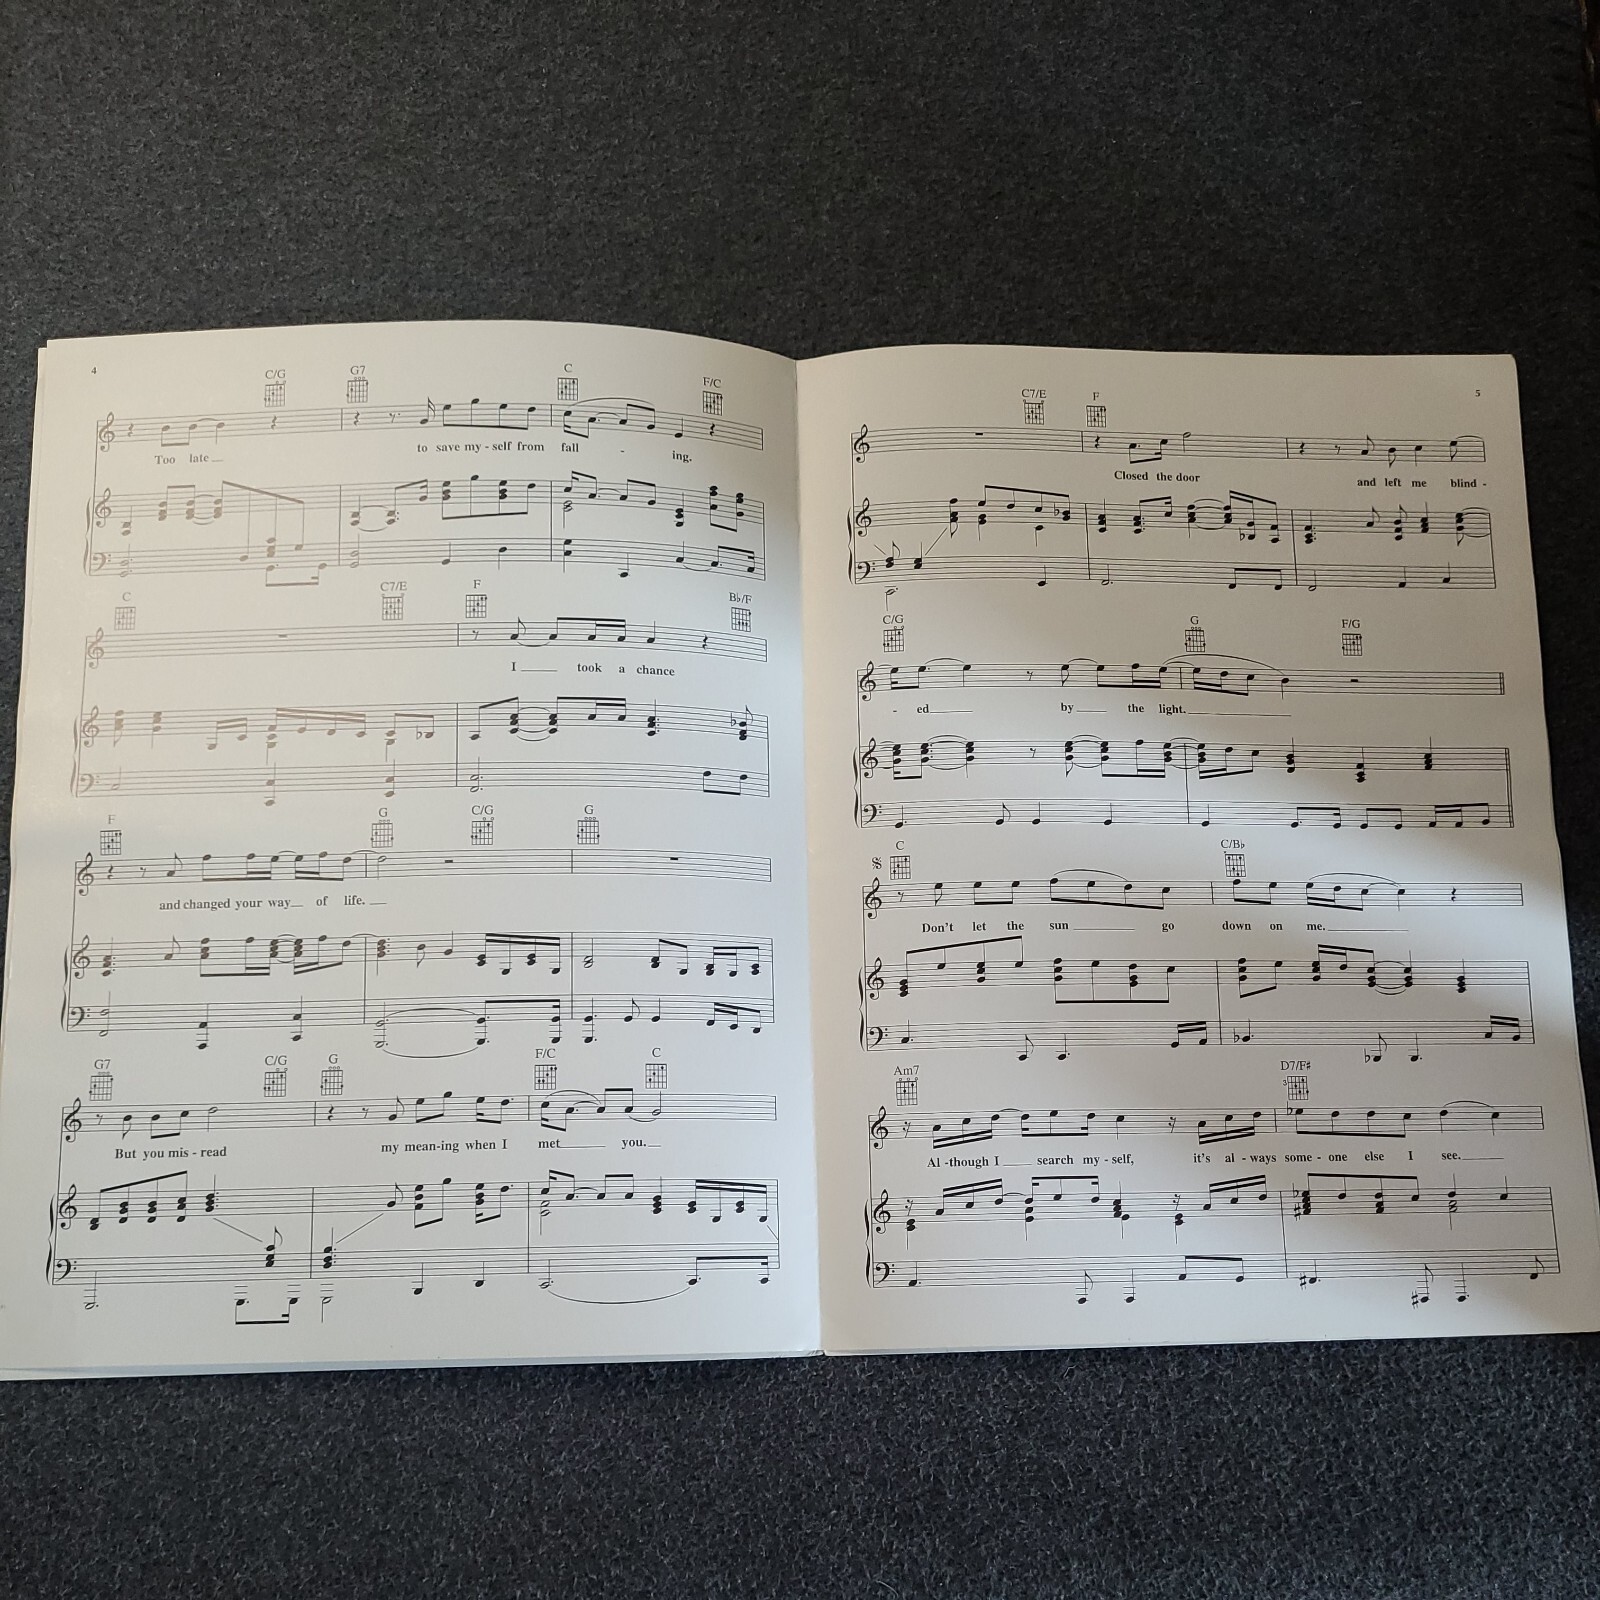 4
C/G G7 C F/C
Too late to save my - self from fall - ing.
C C7/E F B♭/F
I took a chance
F G C/G G
and changed your way of life.
G7 C/G G F/C C
But you mis - read my mean-ing when I met you.
5
C7/E F
Closed the door and left me blind -
C/G G F/G
- ed by the light.
C C/B♭
Don't let the sun go down on me.
Am7 D7/F♯
3
Al -though I search my - self, it's al - ways some - one else I see.